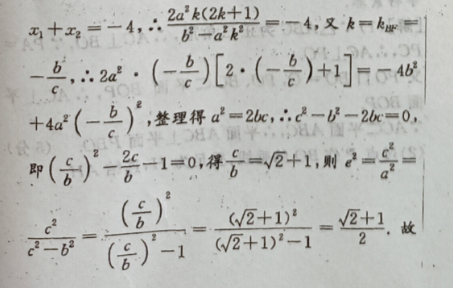 x₁+x₂=-4,∴\frac{2a²k(2k+1)}{b²-a²k²}=-4,又 k=k_{HF}=
-\frac{b}{c},∴2a²·(-\frac{b}{c})[2·(-\frac{b}{c})+1]=-4b²
+4a²(-\frac{b}{c})²,整理得 a²=2bc,∴c²-b²-2bc=0,
即(\frac{c}{b})²-\frac{2c}{b}-1=0,得\frac{c}{b}=√2+1,则 e²=\frac{c²}{a²}=
\frac{c²}{c²-b²}=\frac{(\frac{c}{b})²}{(\frac{c}{b})²-1}=\frac{(√2+1)²}{(√2+1)²-1}=\frac{√2+1}{2}. 故